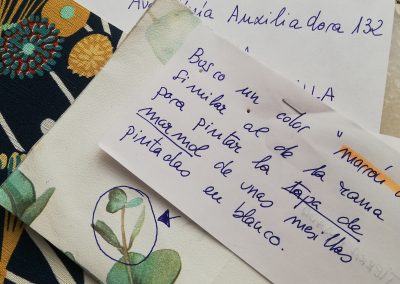 María Auxiliadora 132
Busco un color "marrón
similar al de la rama
para pintar la tapa de
marmol de unas mesillas
pintadas en blanco.